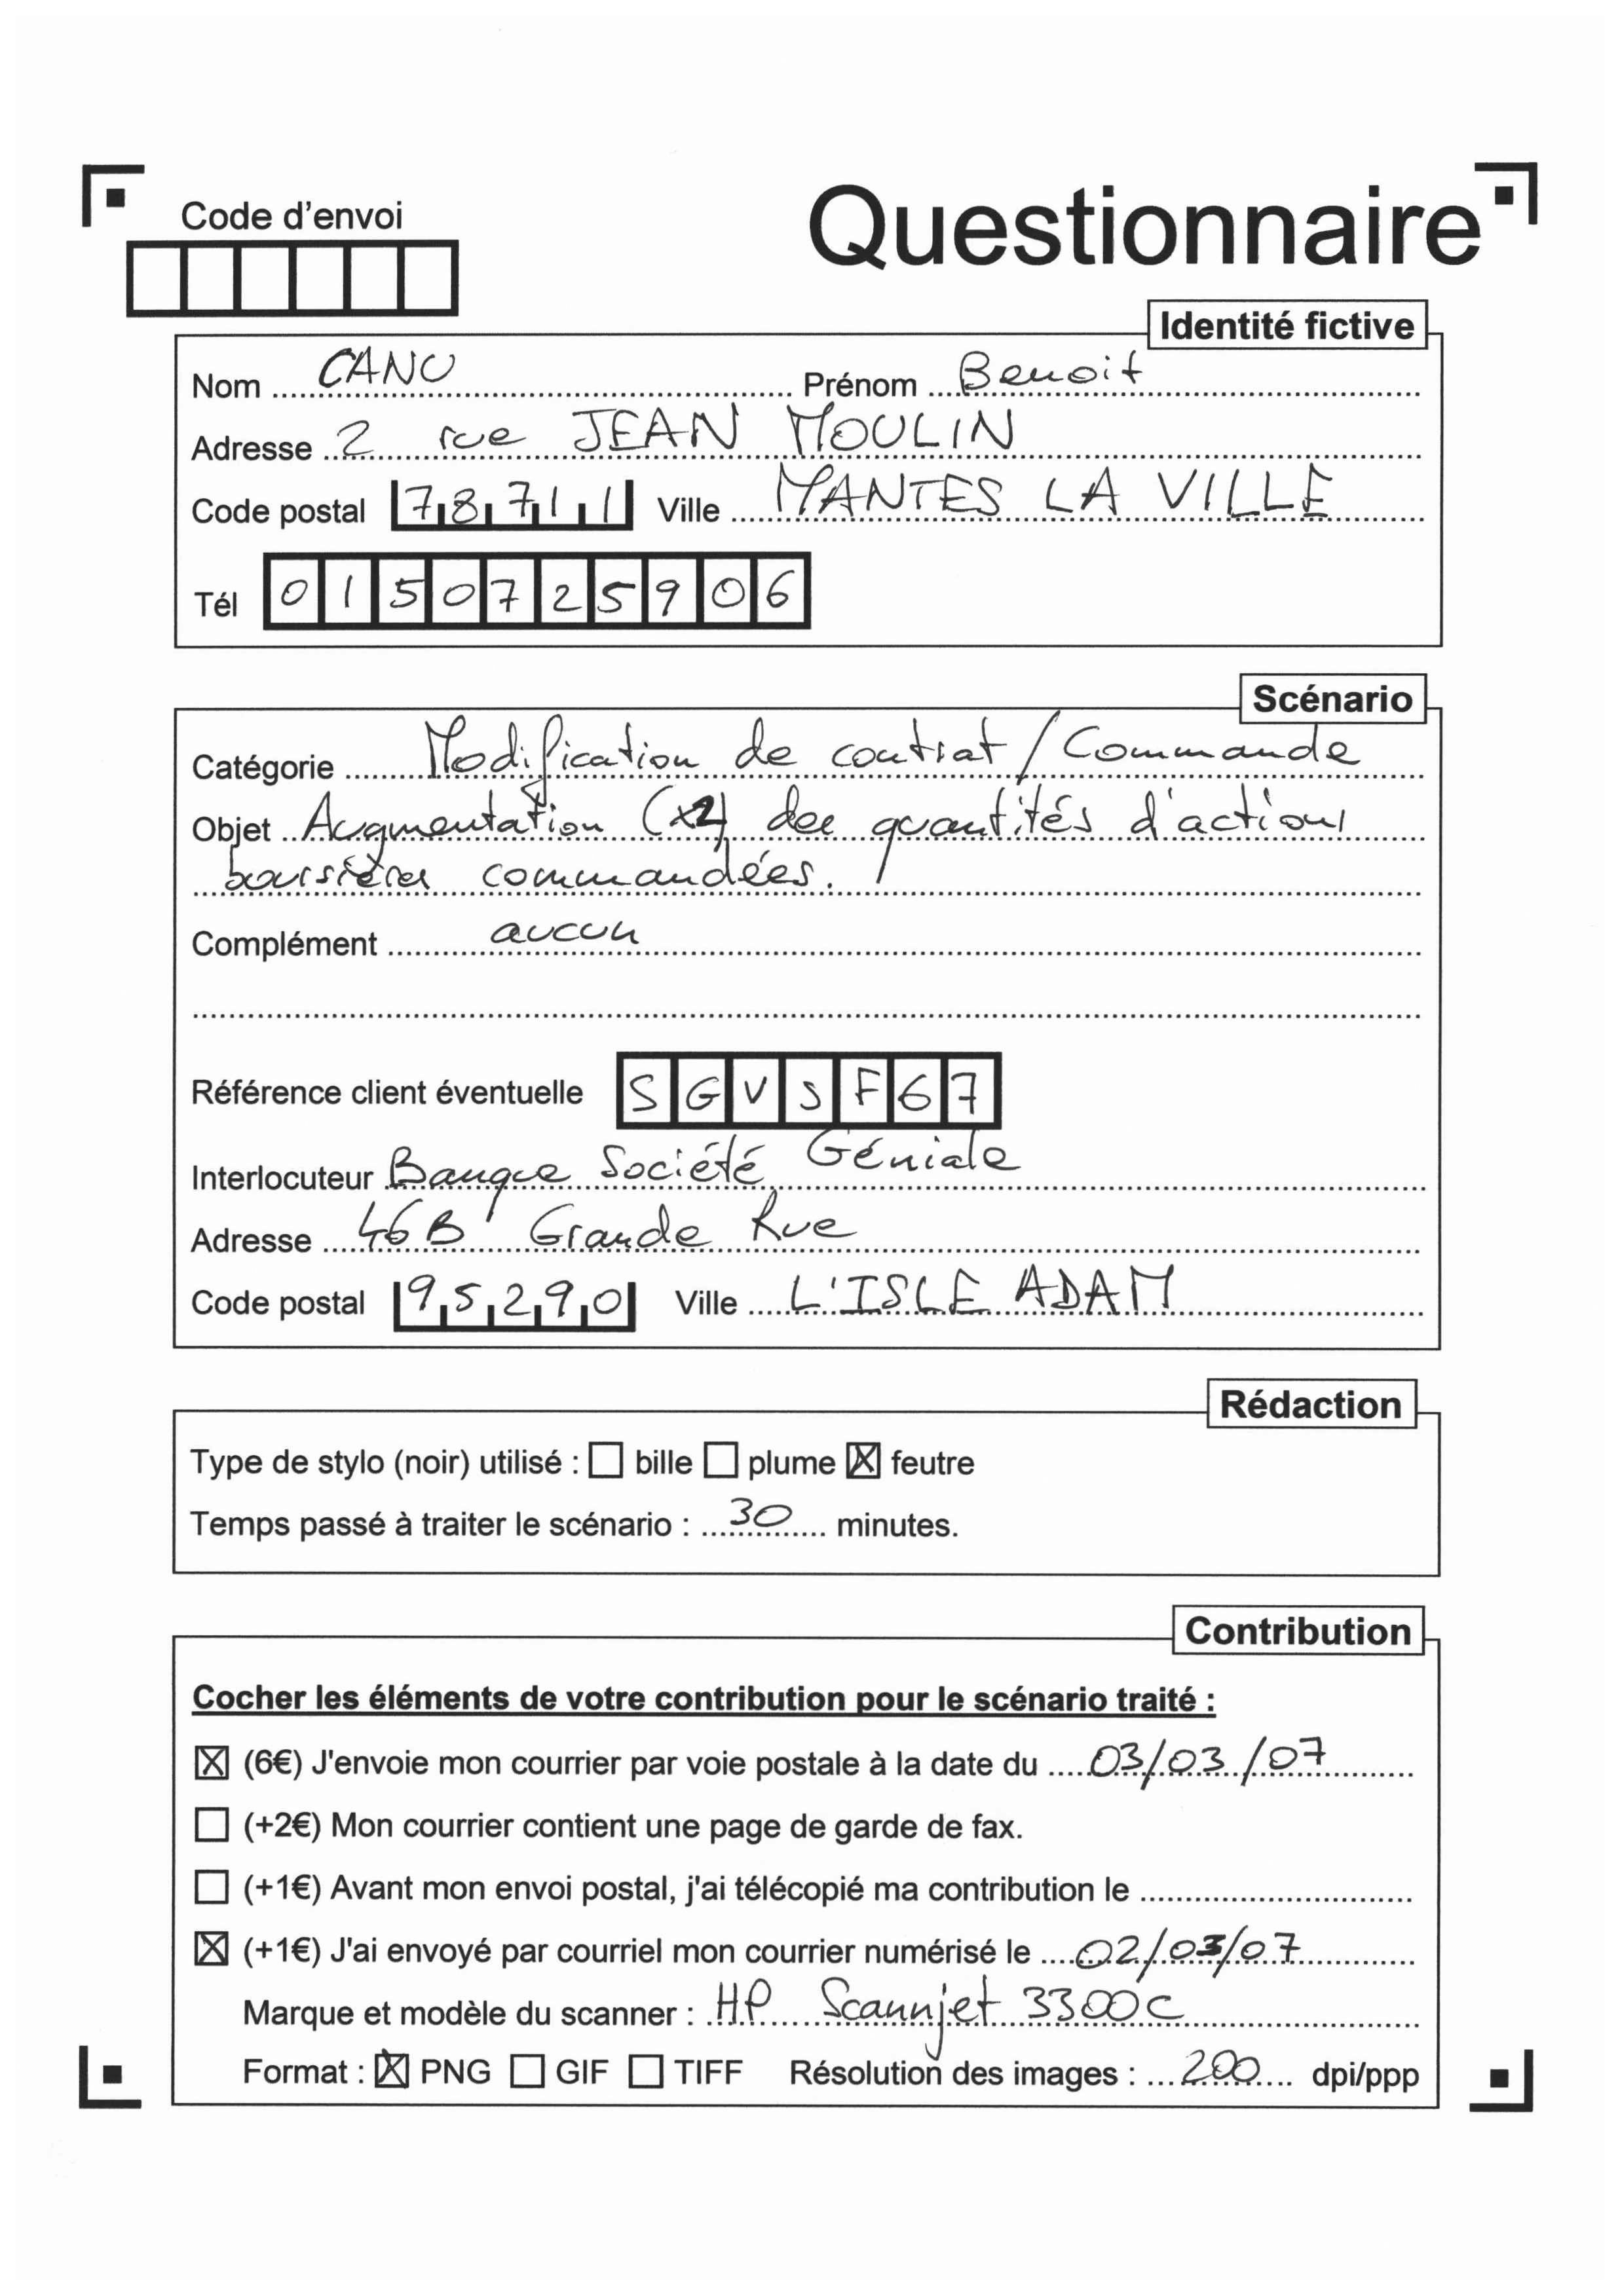 Code d'envoi
Questionnaire
Identité fictive
Nom CANU Prénom Benoit
Adresse 2 rue JEAN MOULIN
Code postal 78711 Ville MANTES LA VILLE
Tél 0150725906
Scénario
Catégorie Modification de contrat / Commande
Objet Augmentation (x2) des quantités d'actions
boursières commandées.
Complément aucun
Référence client éventuelle SGVSF67
Interlocuteur Banque Société Géniale
Adresse 46B Grande Rue
Code postal 95290 Ville L'ISLE ADAM
Rédaction
Type de stylo (noir) utilisé : bille plume feutre
Temps passé à traiter le scénario : 30 minutes.
Contribution
Cocher les éléments de votre contribution pour le scénario traité :
(6€) J'envoie mon courrier par voie postale à la date du 03/03/07
(+2€) Mon courrier contient une page de garde de fax.
(+1€) Avant mon envoi postal, j'ai télécopié ma contribution le
(+1€) J'ai envoyé par courriel mon courrier numérisé le 02/03/07
Marque et modèle du scanner : HP Scannjet 3300C
Format : PNG GIF TIFF Résolution des images : 200 dpi/ppp